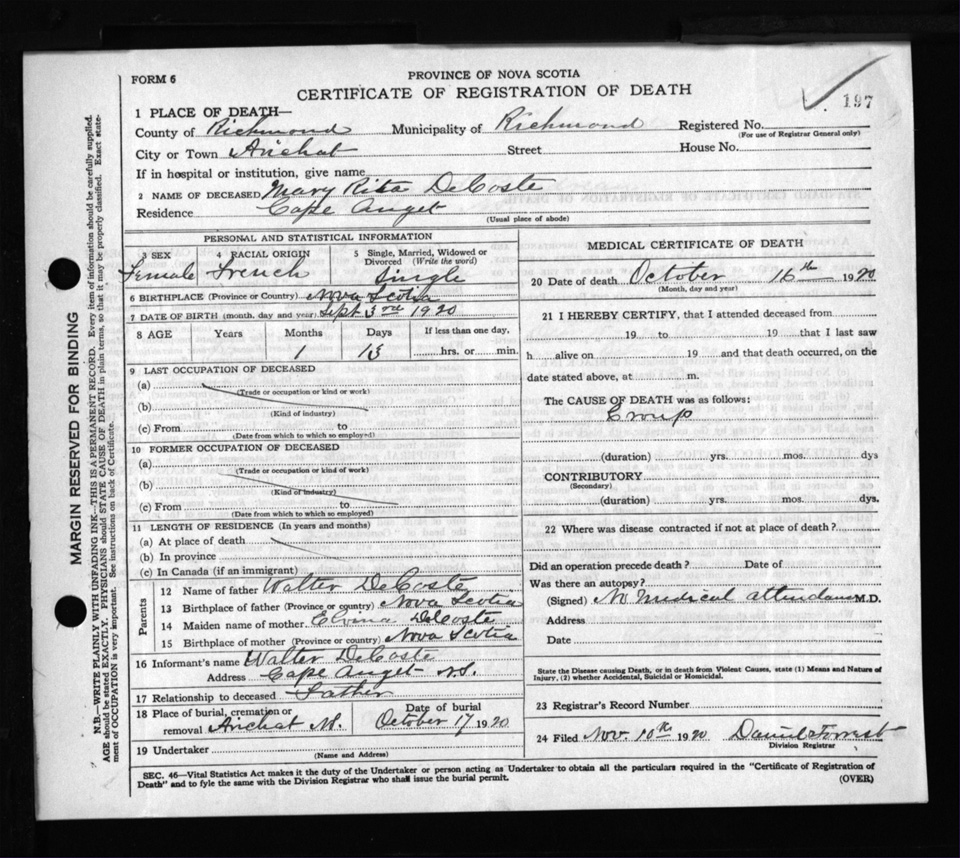 FORM 6
PROVINCE OF NOVA SCOTIA
CERTIFICATE OF REGISTRATION OF DEATH
197
1 PLACE OF DEATH—
County of Richmond Municipality of Richmond Registered No.
(For use of Registrar General only)
City or Town Arichat Street House No.
If in hospital or institution, give name
2 NAME OF DECEASED Mary Rita DeCoste
Residence Cape Auget
(Usual place of abode)
PERSONAL AND STATISTICAL INFORMATION
3 SEX 4 RACIAL ORIGIN 5 Single, Married, Widowed or Divorced (Write the word)
Female French Single
6 BIRTHPLACE (Province or Country) Nova Scotia
7 DATE OF BIRTH (month, day and year) Sept 3rd 1920
8 AGE Years Months Days If less than one day,
1 13 hrs. or min.
9 LAST OCCUPATION OF DECEASED
(a)
(Trade or occupation or kind or work)
(b)
(Kind of industry)
(c) From to
(Date from which to which so employed)
10 FORMER OCCUPATION OF DECEASED
(a)
(Trade or occupation or kind of work)
(b)
(Kind of industry)
(c) From to
(Date from which to which so employed)
11 LENGTH OF RESIDENCE (In years and months)
(a) At place of death
(b) In province
(c) In Canada (if an immigrant)
Parents
12 Name of father Walter DeCoste
13 Birthplace of father (Province or country) Nova Scotia
14 Maiden name of mother Elvina DeCoste
15 Birthplace of mother (Province or country) Nova Scotia
16 Informant's name Walter DeCoste
Address Cape Auget N.S.
17 Relationship to deceased Father
18 Place of burial, cremation or removal Arichat N.S. Date of burial October 17 1920
19 Undertaker
(Name and Address)
MEDICAL CERTIFICATE OF DEATH
20 Date of death October 16th 1920
(Month, day and year)
21 I HEREBY CERTIFY, that I attended deceased from
19 to 19 that I last saw
h alive on 19 and that death occurred, on the
date stated above, at m.
The CAUSE OF DEATH was as follows:
Croup
(duration) yrs. mos. dys
CONTRIBUTORY
(Secondary)
(duration) yrs. mos. dys.
22 Where was disease contracted if not at place of death?
Did an operation precede death? Date of
Was there an autopsy?
(Signed) No medical attendance M.D.
Address
Date
State the Disease causing Death, or in death from Violent Causes, state (1) Means and Nature of
Injury, (2) whether Accidental, Suicidal or Homicidal.
23 Registrar's Record Number
24 Filed Nov. 10th 1920 Daniel Forrest
Division Registrar
SEC. 46—Vital Statistics Act makes it the duty of the Undertaker or person acting as Undertaker to obtain all the particulars required in the "Certificate of Registration of
Death" and to fyle the same with the Division Registrar who shall issue the burial permit.
(OVER)
MARGIN RESERVED FOR BINDING
N.B.—WRITE PLAINLY WITH UNFADING INK—THIS IS A PERMANENT RECORD. Every item of information should be carefully supplied.
AGE should be stated EXACTLY. PHYSICIANS should STATE CAUSE OF DEATH in plain terms, so that it may be properly classified. Exact state-
ment of OCCUPATION is very important. See instructions on back of Certificate.